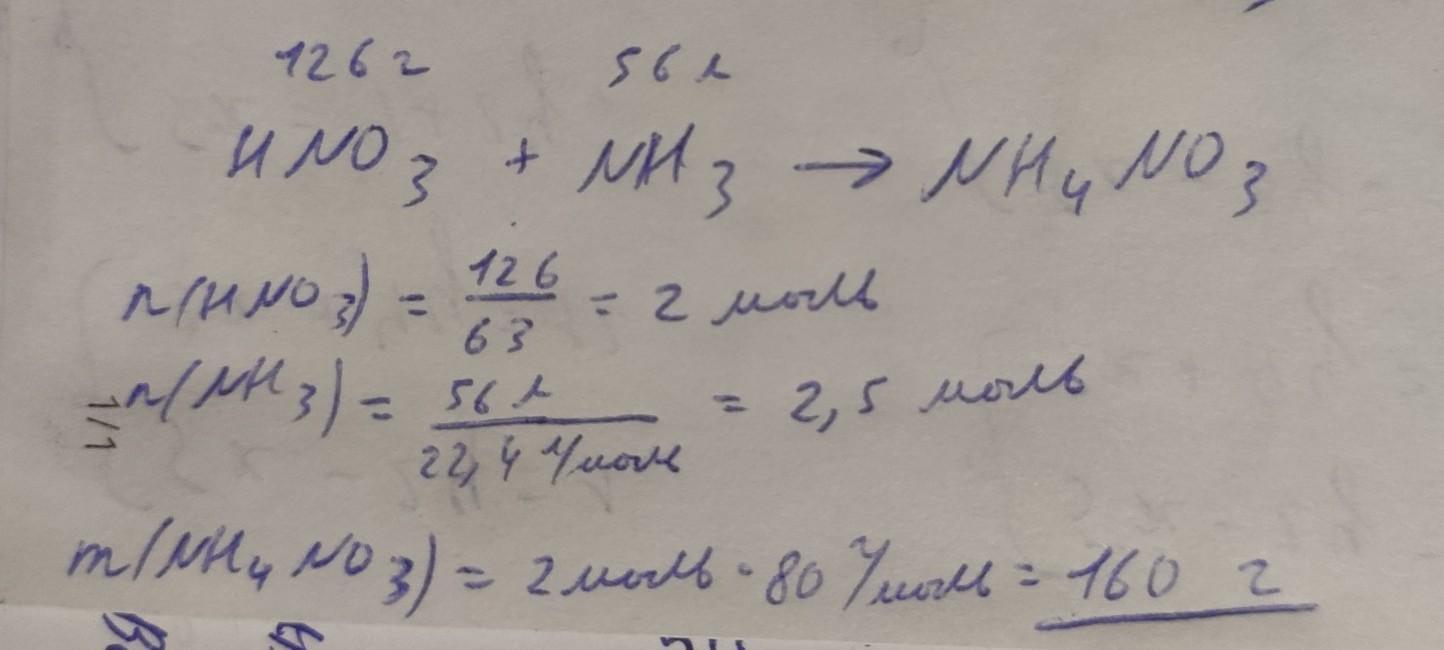 126 г 56 л
HNO₃ + NH₃ → NH₄NO₃
n(HNO₃) = 126/63 = 2 моль
n(NH₃) = 56 л/22,4 л/моль = 2,5 моль
m(NH₄NO₃) = 2 моль · 80 г/моль = 160 г